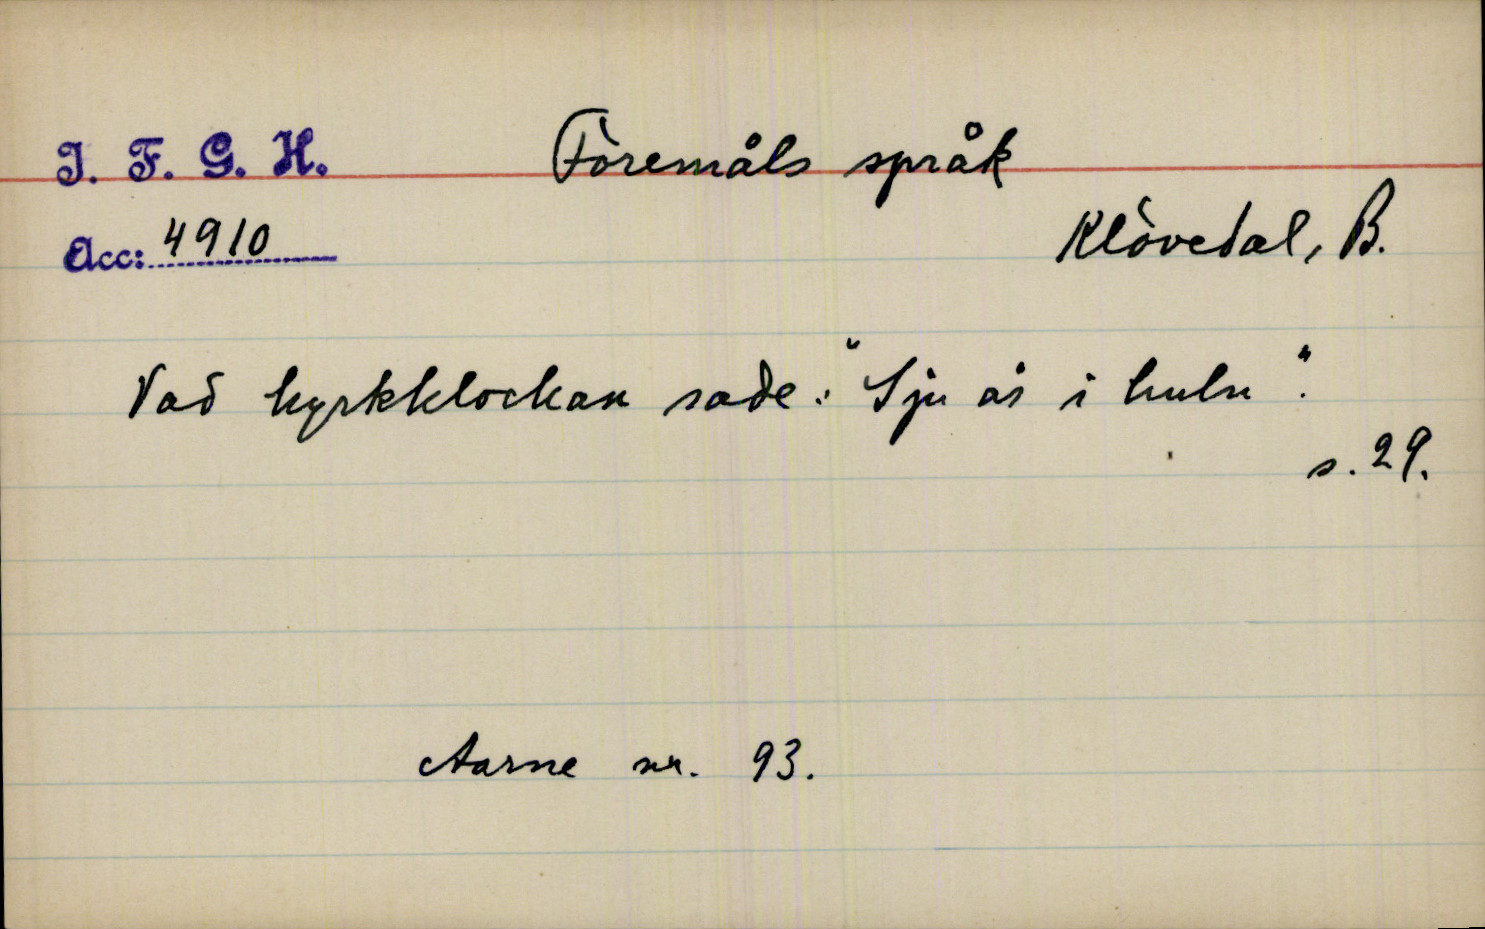 I. F. G. H.
Föremåls språk
Acc: 4910
Klövedal, B.
Vad kyrkklockan sade: "Sju ås i huln".
s. 29.
Aarne nr. 93.